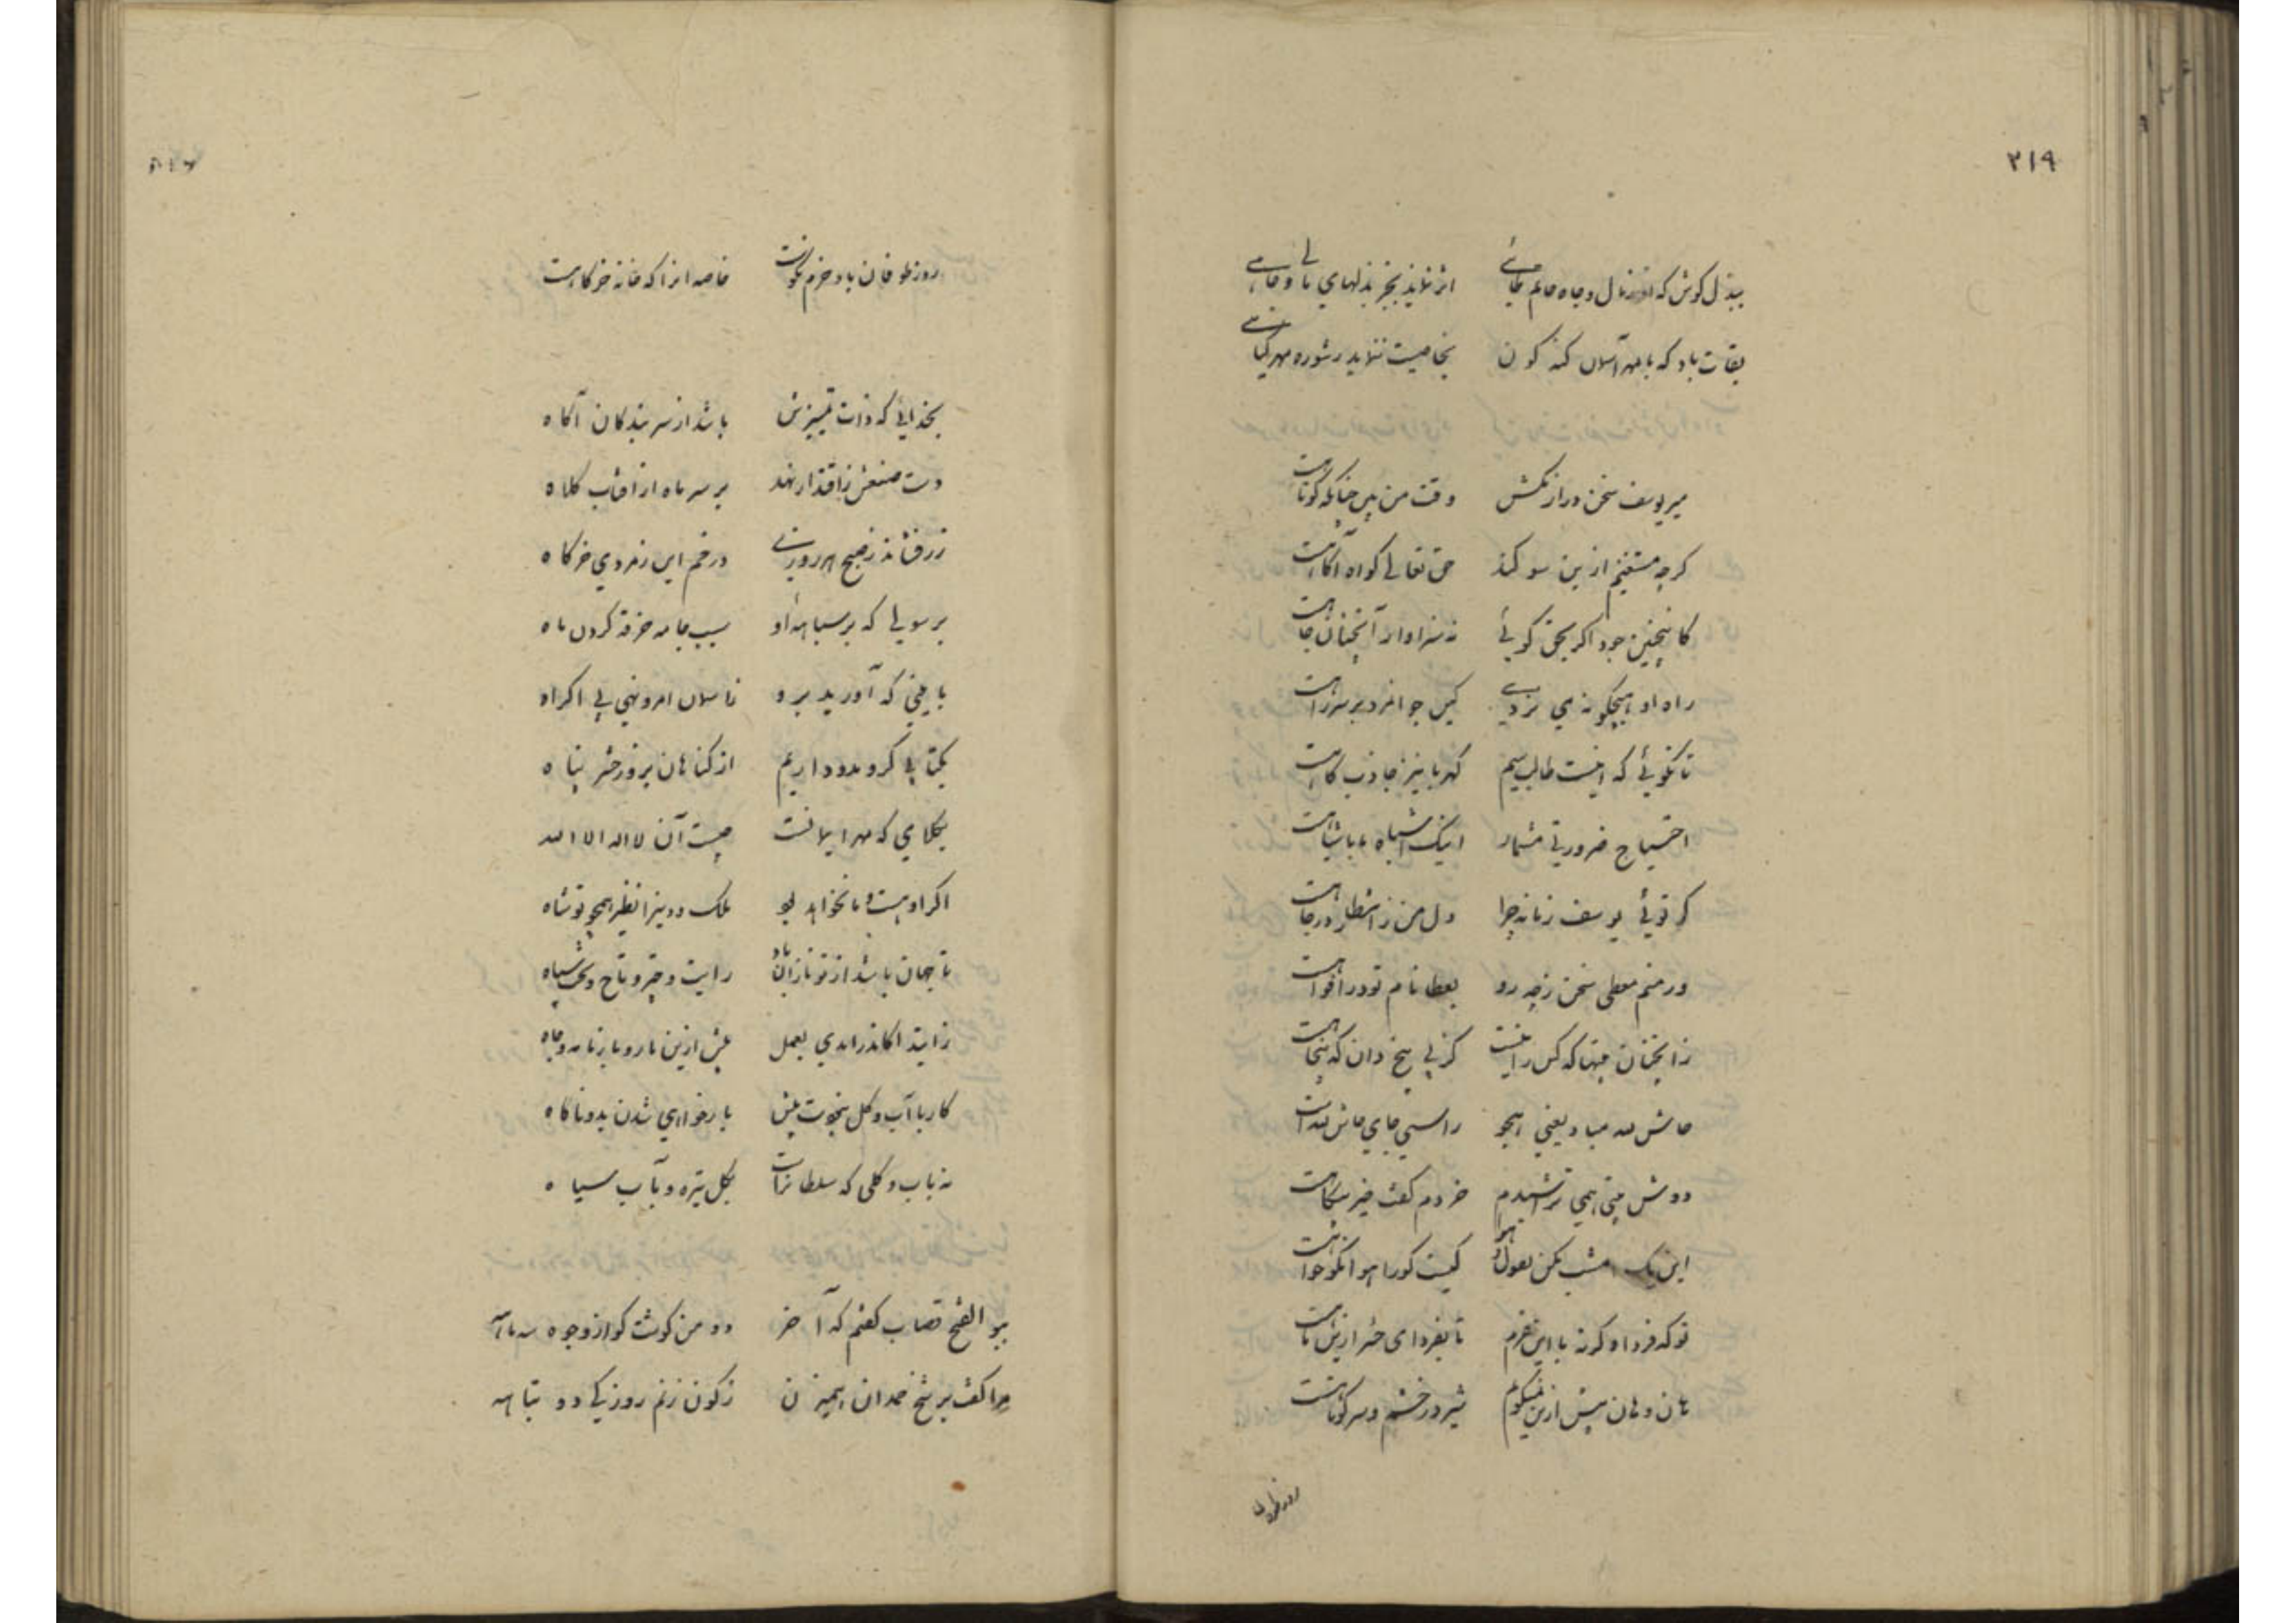 ۲۱۹
ببذل کوش که از مال و جاه حاتم طائی اثر نماند بجز بذلهای مالی و جاهی
بقات باد که با مهر آسمان کند کون بخاصیت ننماید ز شوره مهر گیاهی
میر یوسف سخن دراز مکش وقت من بین چنانکه کوتاهست
کرچه مستغنیم ازین سوکند حق تعالی کواه آکاهست
کاینچنین جود اکر بحق کویی نه سزاوار آنچنان جاهست
راه او هیچکونه می نزدی کین جوانمرد بر سر راهست
تا نکوئی که اینت طالب سیم کهربا نیز جاذب کاهست
احتیاج ضرورتی مشمار اینک اشباه ما باشباهست
کر توئی یوسف زمانه چرا دل من ز انتظار در چاهست
ور منم معطی سخن ز چه رو بعطا نام تو در افواهست
زانچنان بیتها که کس را نیست کز پی پنج دان که پنجاهست
حاش لله مباد یعنی هجو راستی جای حاش للهست
دوش بیتی همی تراشیدم خردم کفت خیر بیکاهست
این یک امشب مکن بقول هوا کیست کو را هوا نکوخواهست
تو که فردا و کرنه با این عزم تا بفردای حشر ازین تاهست
هان و هان بیش ازین نمیکویم شیر در خشم و سر کوتاهست
روز طوفان
روز طوفان باد حزم نکوست خاصه انرا که خانه خرکاهست
بخدایی که ذات بیچونش باشد از سر بندکان آکاه
دست صنعش ز اقتدار نهد بر سر ماه از افتاب کلاه
زر فشاند ز صبح هر روزی در خم این زمردی خرکاه
برسولی که بر سبابه او سبب جامه خرقه کردن ماه
بامینی که آورید برو ز اسمان امر و نهی بی اکراه
بکتابی کزو مدد داریم از کناهان بروز حشر پناه
بکلامی که مهر ایمانست چیست آن لا اله الا الله
اکر او هست و یا نخواهد بود ملک و دین را نظیر همچو تو شاه
تا جهان باشد از تو نازان باد رایت و چتر و تاج و تخت و سپاه
ز ابتدا کاندر امدی بعمل پیش ازین بار و بار نامه و جاه
کار با آب و کل نبوت پیش بار خواهی شدن بدو ناکاه
نه باب و کلی که سلطانراست بکل تیره و بآب سیاه
ببو الفتح قصاب کفتم که آخر دو من کوشت کو از وجوه سه ماهه
مرا کفت بر شخ خمدان همیزن زکون زنم روزیکی دو تباهه